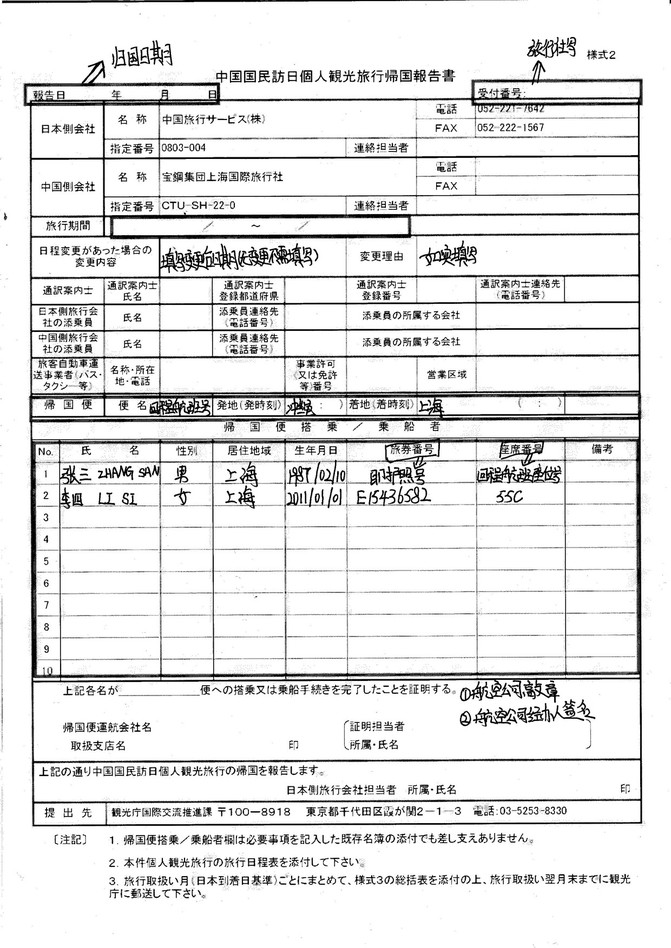 归国日期
旅行社号
様式2
中国国民訪日個人観光旅行帰国報告書
報告日 年 月 日
受付番号:
日本側会社 名 称 中国旅行サービス(株) 電話 052-221-7642
FAX 052-222-1567
指定番号 0803-004 連絡担当者
中国側会社 名 称 宝鋼集団上海国際旅行社 電話
FAX
指定番号 CTU-SH-22-0 連絡担当者
旅行期間 / ~ /
日程変更があった場合の変更内容 填写变更后日期(无变更不需填写) 変更理由 如实填写
通訳案内士 通訳案内士氏名 通訳案内士登録都道府県 通訳案内士登録番号 通訳案内士連絡先(電話番号)
日本側旅行会社の添乗員 氏名 添乗員連絡先(電話番号) 添乗員の所属する会社
中国側旅行会社の添乗員 氏名 添乗員連絡先(電話番号) 添乗員の所属する会社
旅客自動車運送事業者(バス・タクシー等) 名称・所在地・電話 事業許可(又は免許等)番号 営業区域
帰国便 便名 回程航班号 発地(発時刻) 冲绳 : ) 着地(着時刻) 上海 ( : )
帰国便搭乗/乗船者
No. 氏 名 性別 居住地域 生年月日 旅券番号 座席番号 備考
1 张三 ZHANG SAN 男 上海 1987/02/10 即护照号 回程航班座位号
2 李四 LI SI 女 上海 2011/01/01 E15436582 55C
3
4
5
6
7
8
9
10
上記各名が 便への搭乗又は乗船手続きを完了したことを証明する。
①航空公司敲章
②航空公司经办人签名
帰国便運航会社名 証明担当者
取扱支店名 印 所属・氏名
上記の通り中国国民訪日個人観光旅行の帰国を報告します。
日本側旅行会社担当者 所属・氏名 印
提出先 観光庁国際交流推進課 〒100-8918 東京都千代田区霞が関2-1-3 電話:03-5253-8330
〔注記〕 1. 帰国便搭乗/乗船者欄は必要事項を記入した既存名簿の添付でも差し支えありません。
2. 本件個人観光旅行の旅行日程表を添付して下さい。
3. 旅行取扱い月(日本到着日基準)ごとにまとめて、様式3の総括表を添付の上、旅行取扱い翌月末までに観光
庁に郵送して下さい。